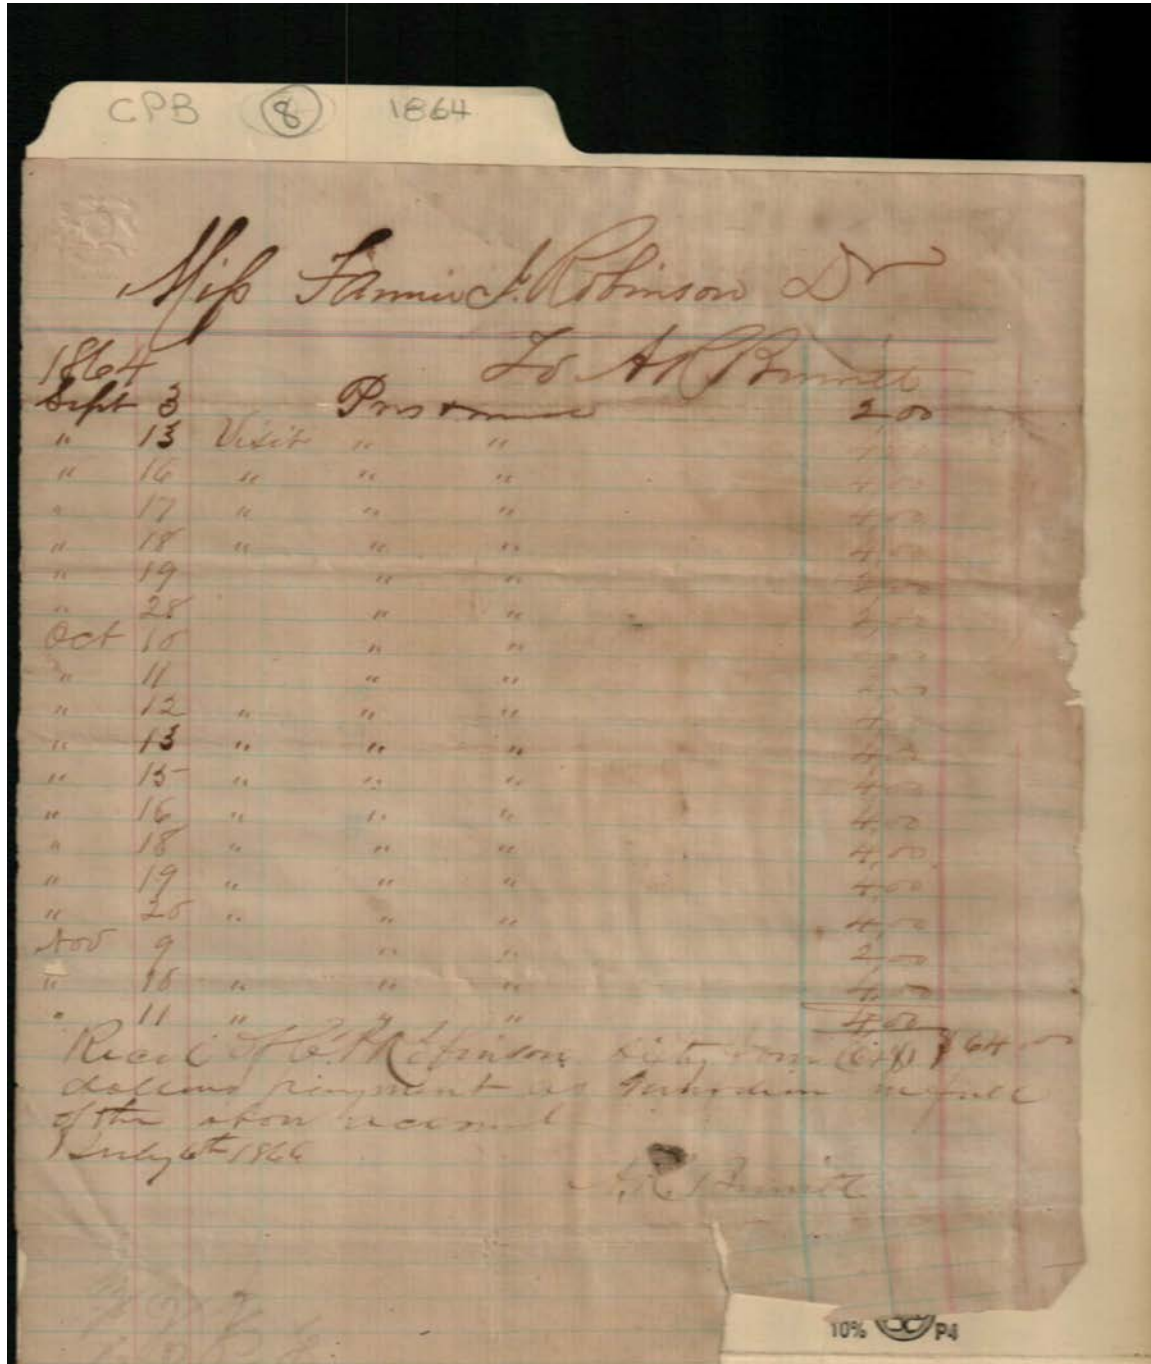 CPB 8 1864
Miss Fannie J. Robinson Dr
1864 To A R Burnett
Sept 3 Pres & med 2,00
" 13 Visit " "
" 16 " " " 4,00
" 17 " " " 4,00
" 18 " " " 4,00
" 19 " " 2,00
" 28 " " 2,00
Oct 10 " "
" 11 " "
" 12 " " "
" 13 " " " 4,00
" 15 " " " 4,00
" 16 " " " 4,00
" 18 " " " 4,00
" 19 " " " 4,00
" 20 " " " 4,00
Nov 9 " " 2,00
" 10 " " " 4,00
" 11 " " " 4,00
Recd of Robinson Sixty four (64) $64 00
dollars payment as Guardian in full
of the above account
July 6th 1866
A. R. Burnett
10% P4